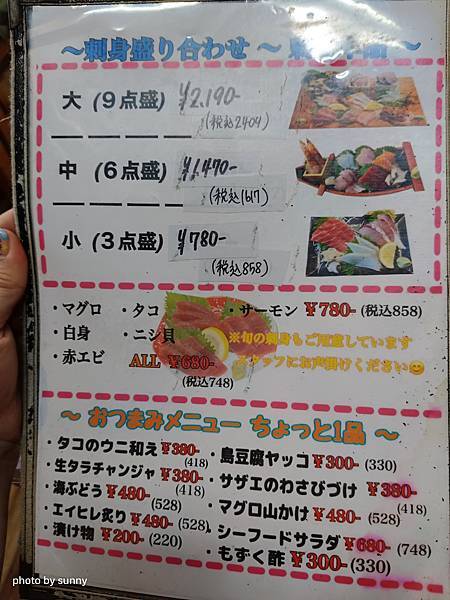 ～刺身盛り合わせ～
大 (9点盛) ¥2,190-
(税込2409)
中 (6点盛) ¥1,470-
(税込1617)
小 (3点盛) ¥780-
(税込858)
・マグロ ・タコ ・サーモン ¥780- (税込858)
・白身 ・ニシ貝 ※旬の刺身もご用意しています
・赤エビ ALL ¥680- スタッフにお声掛けください😊
(税込748)
～ おつまみメニュー ちょっと1品 ～
・タコのウニ和え ¥380-
(418)
・島豆腐ヤッコ ¥300- (330)
・生タラチャンジャ ¥380-
(418)
・サザエのわさびづけ ¥380-
(418)
・海ぶどう ¥480-
(528)
・マグロ山かけ ¥480- (528)
・エイヒレ炙り ¥480- (528)
・シーフードサラダ ¥680- (748)
・漬け物 ¥200- (220)
・もずく酢 ¥300- (330)
photo by sunny